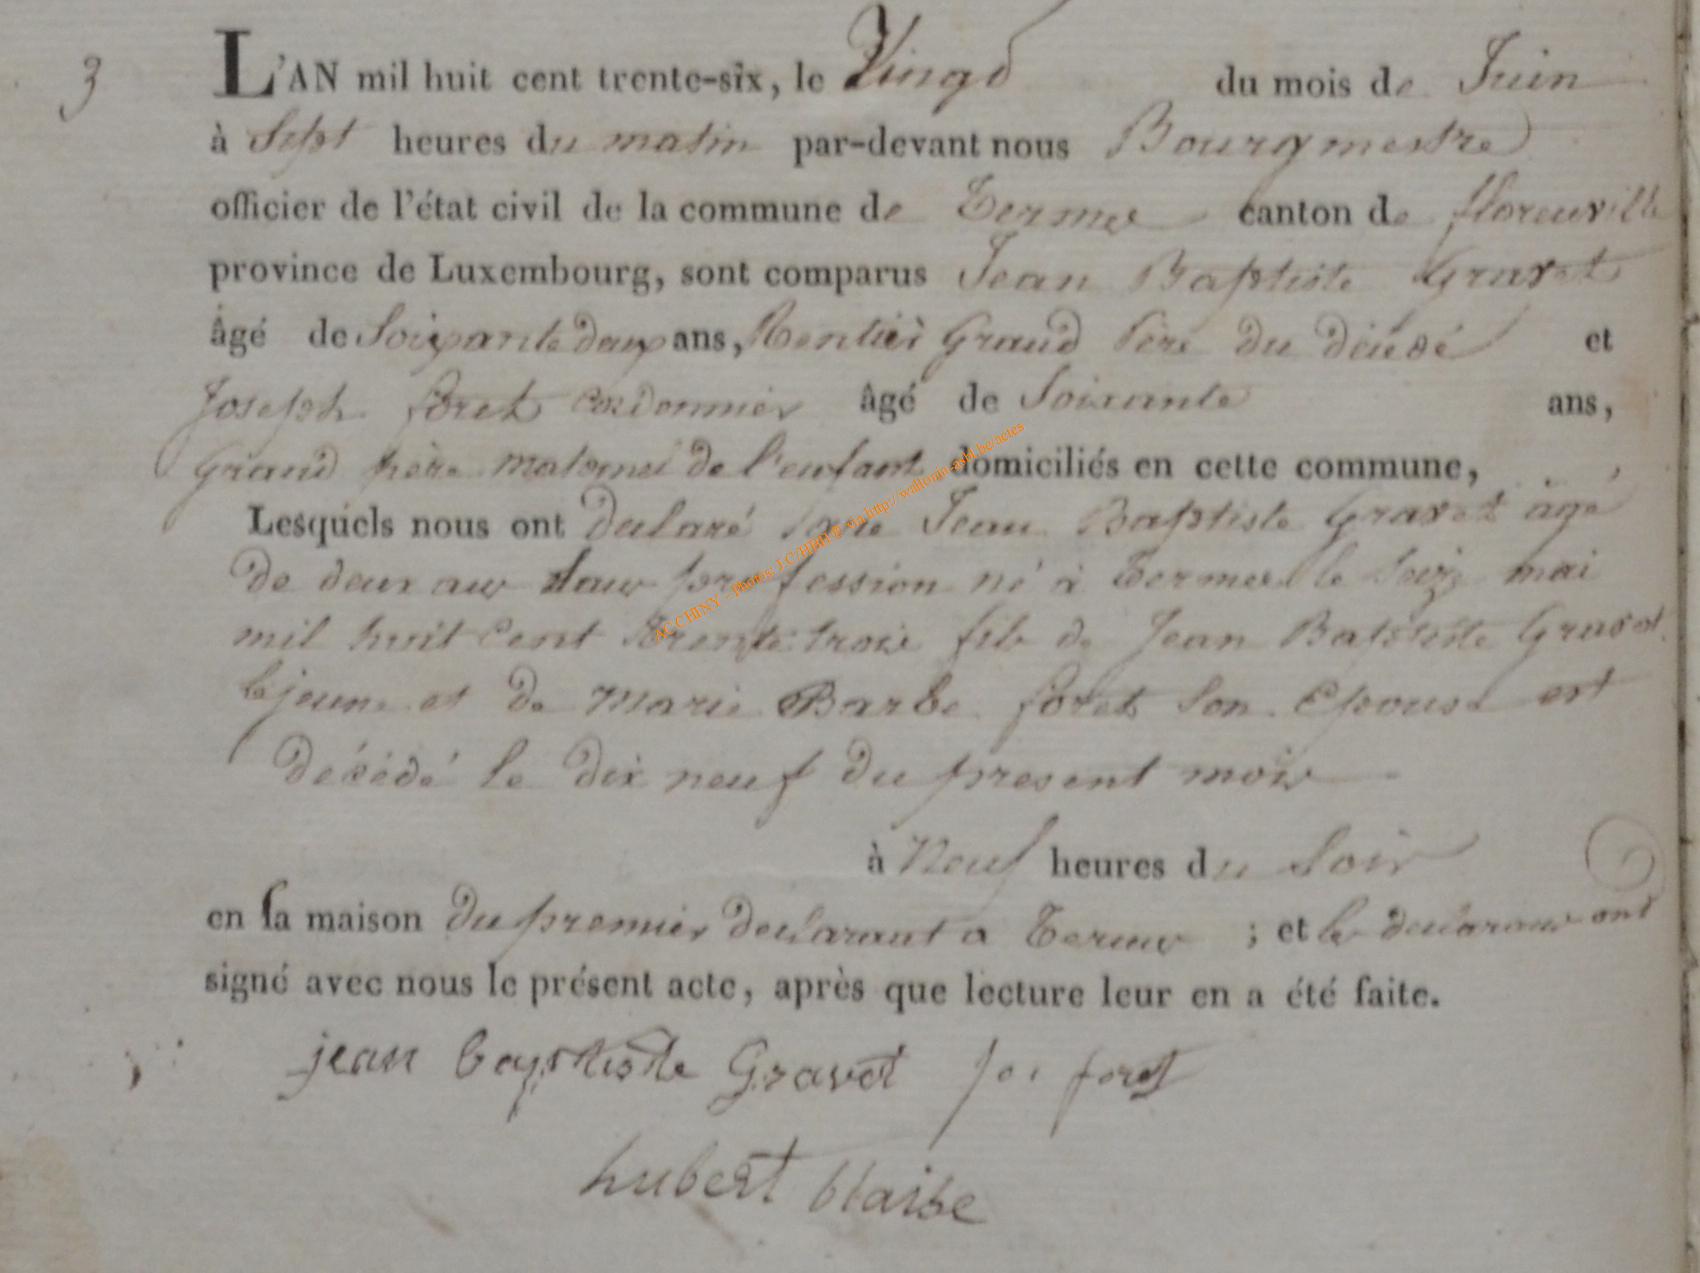 3
L'AN mil huit cent trente-six, le Vingt du mois de Juin
à Sept heures du matin par-devant nous Bourgmestre
officier de l'état civil de la commune de Termes canton de florenville
province de Luxembourg, sont comparus Jean Baptiste Gravet
âgé de Soixante deux ans, Rentier Grand Père du décédé et
Joseph foret cordonnier âgé de Soixante ans,
Grand père maternel de l'enfant domiciliés en cette commune,
Lesquels nous ont declaré que Jean Baptiste Gravet âgé
de deux ans sans profession né à Termes le Seize mai
mil huit Cent trente trois fils de Jean Baptiste Gravet
le jeune et de Marie Barbe foret son Epouse est
décédé le dix neuf du present mois
à Neuf heures du Soir
en sa maison du premier declarant a Termes ; et les declarans ont
signé avec nous le présent acte, après que lecture leur en a été faite.
jean baptiste Gravet Jos foret
hubert blaise
AC CHINY - photos J.C HBq @ via http://wallonia-asbl.be/actes